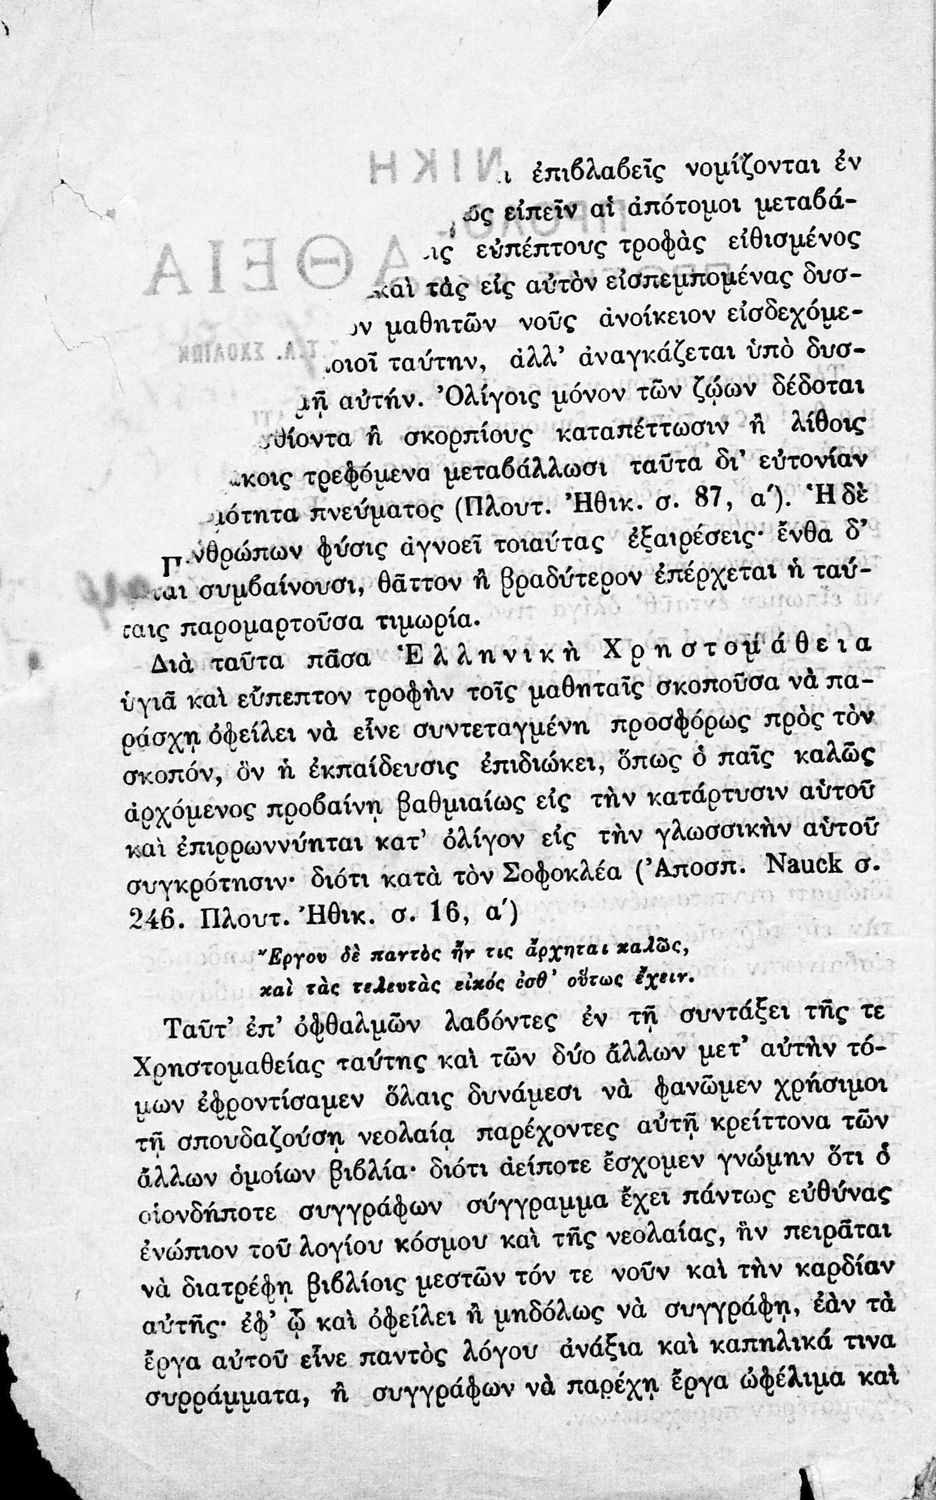 ἐπιβλαβεῖς νομίζονται ἐν
εἰπεῖν αἱ ἀπότομοι μεταβά-
εὐπέπτους τροφὰς εἰθισμένος
καὶ τὰς εἰς αὐτὸν εἰσπεμπομένας δυσ-
μαθητῶν νοῦς ἀνοίκειον εἰσδεχόμε-
ταύτην, ἀλλ' ἀναγκάζεται ὑπὸ δυσ-
αὐτήν. Ὀλίγοις μόνον τῶν ζῴων δέδοται
ἢ σκορπίους καταπέττωσιν ἢ λίθοις
τρεφόμενα μεταβάλλωσι ταῦτα δι' εὐτονίαν
πνεύματος (Πλουτ. Ἠθικ. σ. 87, α'). Ἡ δὲ
φύσις ἀγνοεῖ τοιαύτας ἐξαιρέσεις· ἔνθα δ'
συμβαίνουσι, θᾶττον ἢ βραδύτερον ἐπέρχεται ἡ ταύ-
ταις παρομαρτοῦσα τιμωρία.
Διὰ ταῦτα πᾶσα Ἑλληνικὴ Χρηστομάθεια
ὑγιᾶ καὶ εὔπεπτον τροφὴν τοῖς μαθηταῖς σκοποῦσα νὰ πα-
ράσχῃ ὀφείλει νὰ εἶνε συντεταγμένη προσφόρως πρὸς τὸν
σκοπόν, ὃν ἡ ἐκπαίδευσις ἐπιδιώκει, ὅπως ὁ παῖς καλῶς
ἀρχόμενος προβαίνῃ βαθμιαίως εἰς τὴν κατάρτυσιν αὑτοῦ
καὶ ἐπιρρωννύηται κατ' ὀλίγον εἰς τὴν γλωσσικὴν αὑτοῦ
συγκρότησιν· διότι κατὰ τὸν Σοφοκλέα (Ἀποσπ. Nauck σ.
246. Πλουτ. Ἠθικ. σ. 16, α')
Ἔργου δὲ παντὸς ἤν τις ἄρχηται καλῶς,
καὶ τὰς τελευτὰς εἰκός ἐσθ' οὕτως ἔχειν.
Ταῦτ' ἐπ' ὀφθαλμῶν λαβόντες ἐν τῇ συντάξει τῆς τε
Χρηστομαθείας ταύτης καὶ τῶν δύο ἄλλων μετ' αὐτὴν τό-
μων ἐφροντίσαμεν ὅλαις δυνάμεσι νὰ φανῶμεν χρήσιμοι
τῇ σπουδαζούσῃ νεολαίᾳ παρέχοντες αὐτῇ κρείττονα τῶν
ἄλλων ὁμοίων βιβλία· διότι ἀείποτε ἔσχομεν γνώμην ὅτι ὁ
οἱονδήποτε συγγράφων σύγγραμμα ἔχει πάντως εὐθύνας
ἐνώπιον τοῦ λογίου κόσμου καὶ τῆς νεολαίας, ἣν πειρᾶται
νὰ διατρέφῃ βιβλίοις μεστῶν τόν τε νοῦν καὶ τὴν καρδίαν
αὐτῆς· ἐφ' ᾧ καὶ ὀφείλει ἢ μηδόλως νὰ συγγράφῃ, ἐὰν τὰ
ἔργα αὐτοῦ εἶνε παντὸς λόγου ἀνάξια καὶ καπηλικά τινα
συρράμματα, ἢ συγγράφων νὰ παρέχῃ ἔργα ὠφέλιμα καὶ